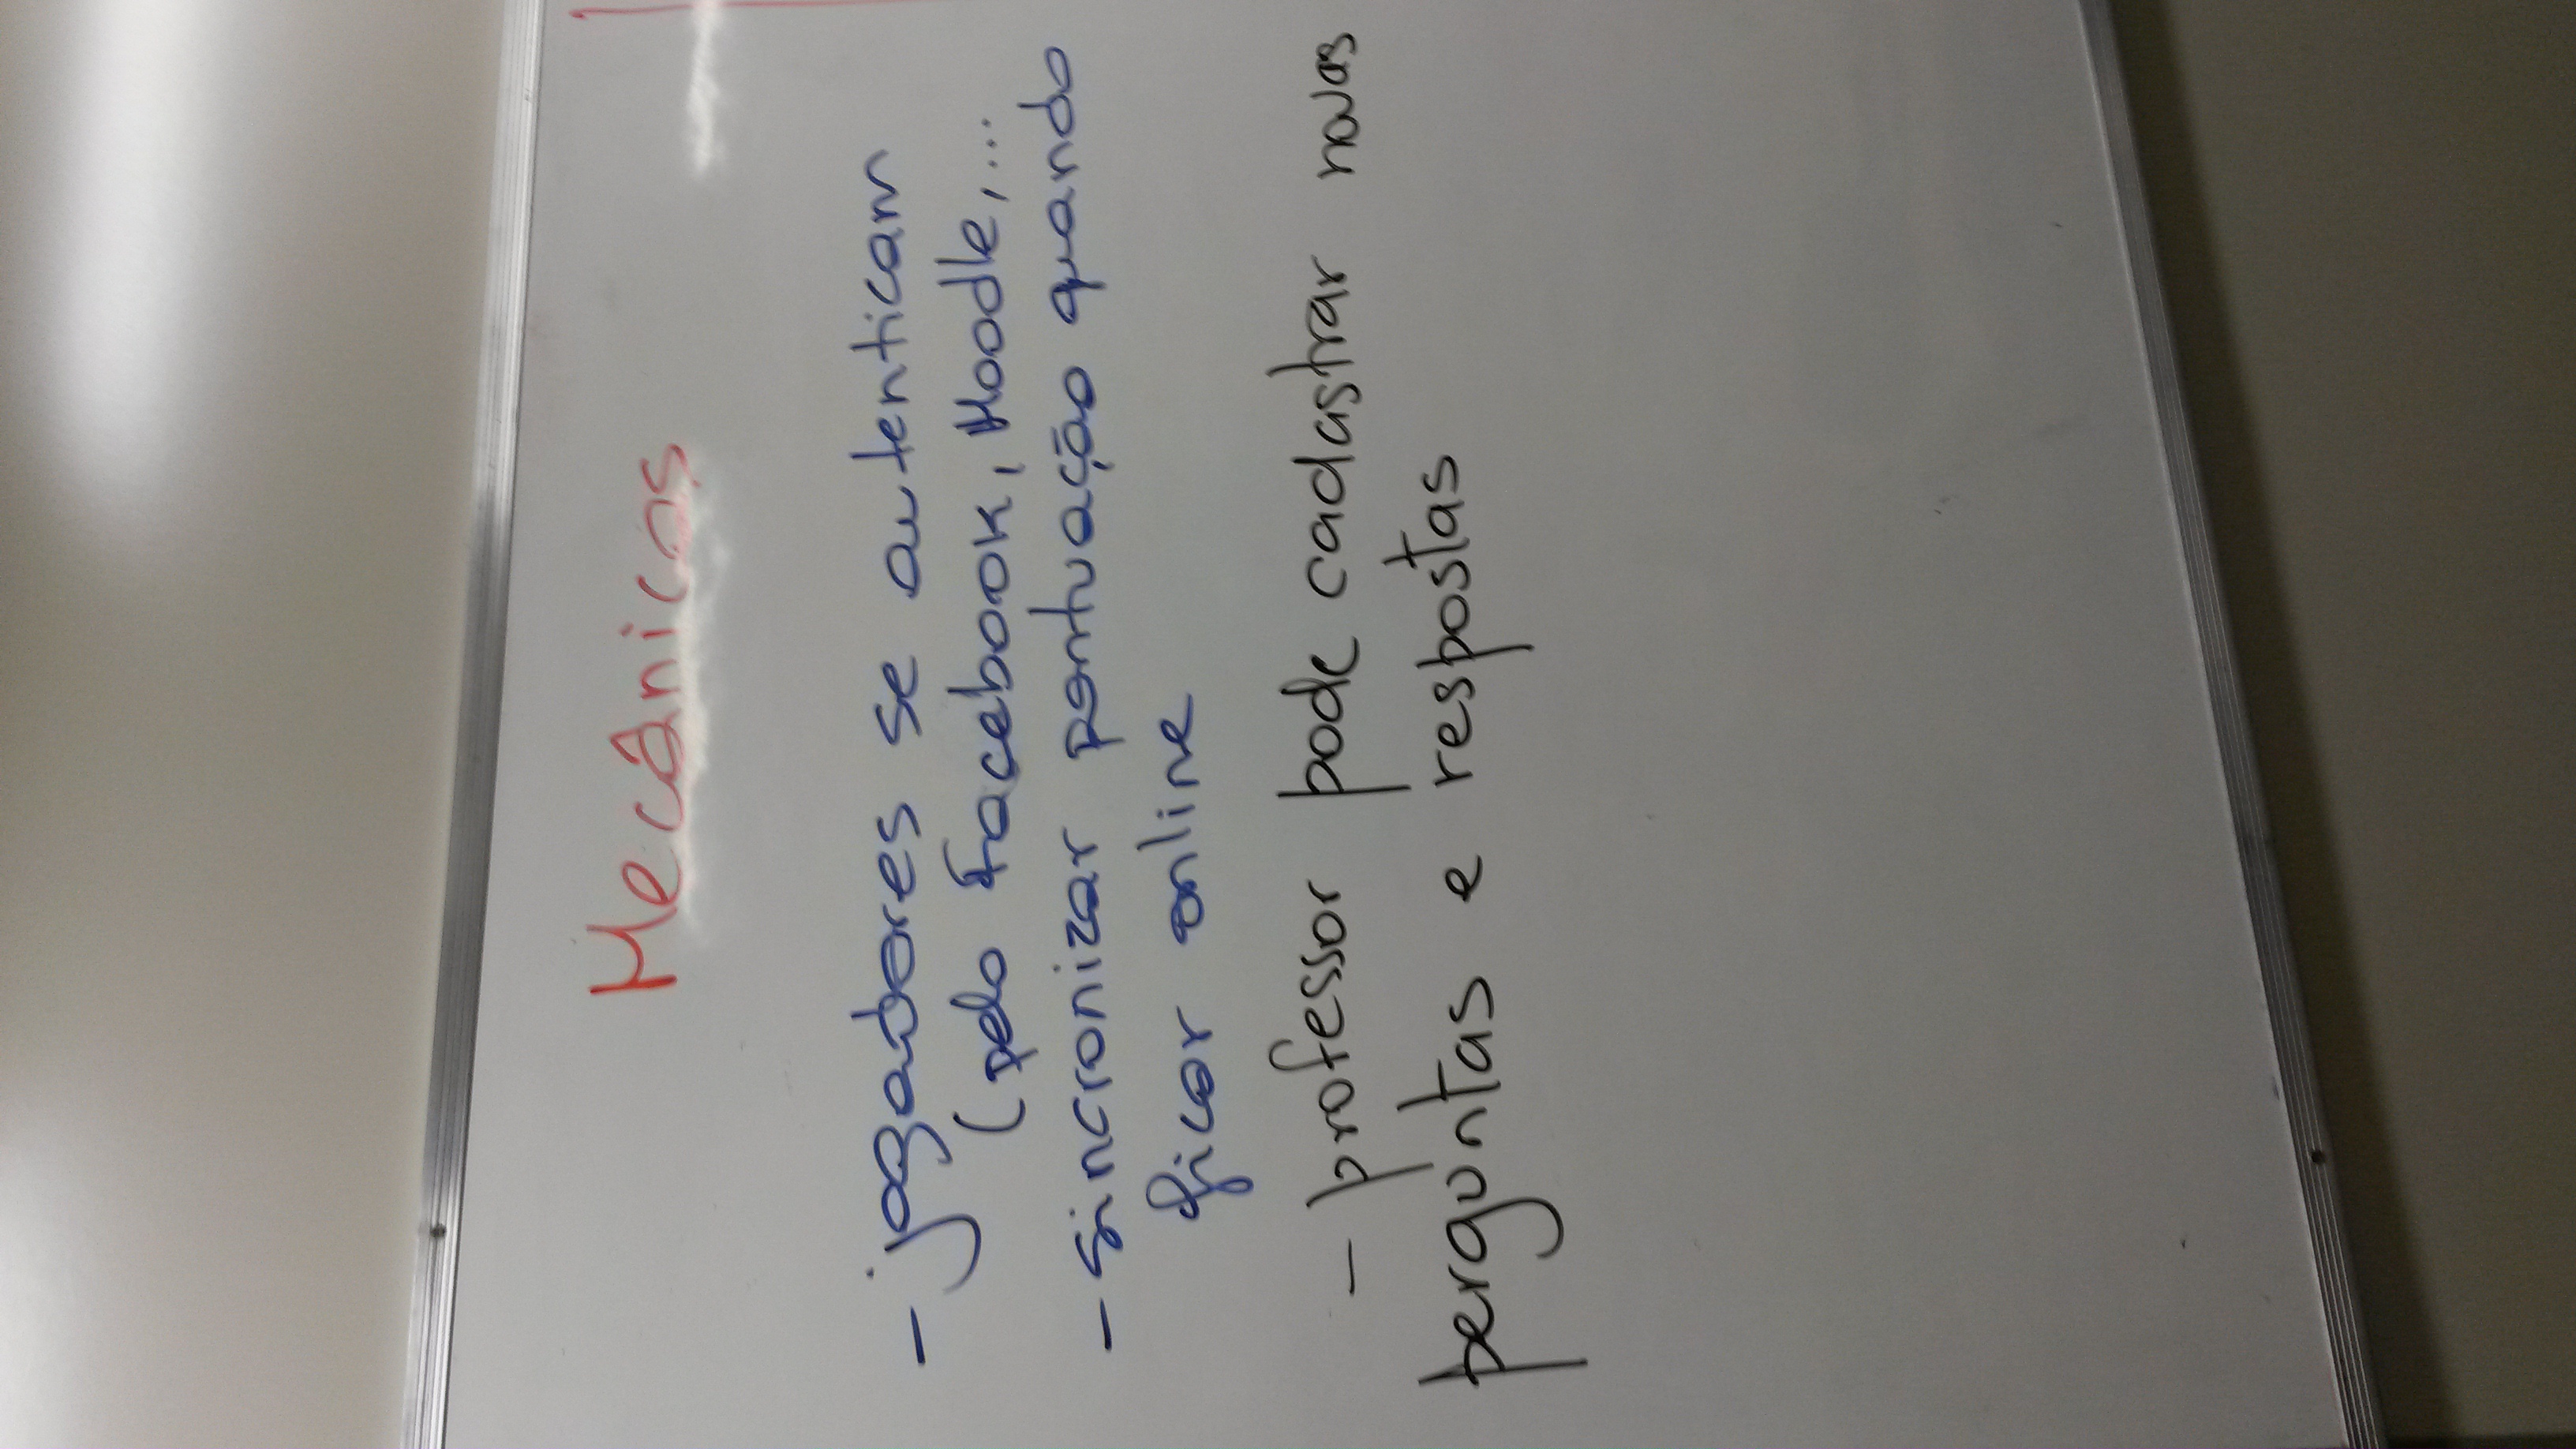 Mecânicas
- jogadores se autenticam
(pelo Facebook, Moodle,...
- sincronizar pontuação quando
ficar online
- professor pode cadastrar novas
perguntas e respostas